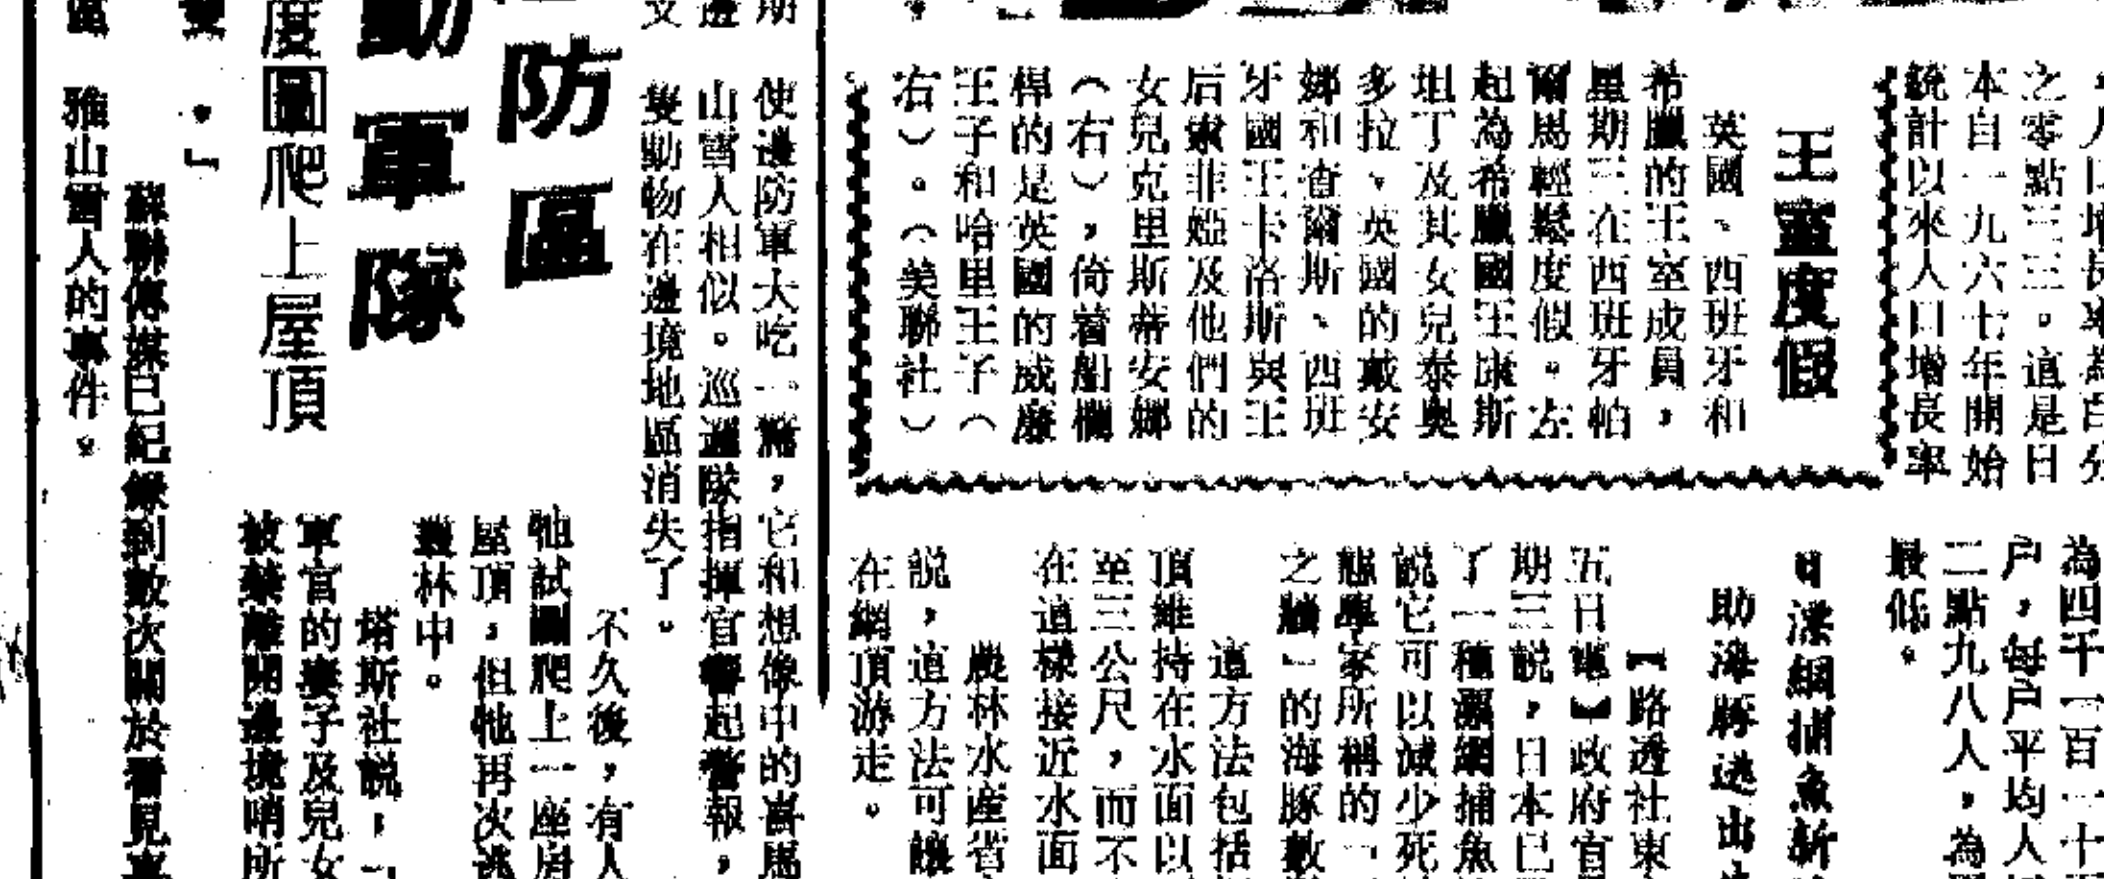 之零點三三。這是日
本自一九六七年開始
統計以來人口增長率
為四千一百二十
戶，每戶平均人
二點九八人，為
最低。
王室度假
英國、西班牙和
希臘的王室成員，
星期三在西班牙帕
爾馬輕鬆度假。左
起為希臘國王康斯
坦丁及其女兒泰奧
多拉、英國的戴安
娜和查爾斯、西班
牙國王卡洛斯與王
后索非婭及他們的
女兒克里斯蒂安娜
（右），倚著船欄
桿的是英國的威廉
王子和哈里王子（
右）。（美聯社）
助海豚逃出
【路透社東
五日電】政府官
期三說，日本已
了一種流網捕魚
說它可以減少死
態學家所稱的「
之牆」的海豚數
這方法包括
頂維持在水面以
至三公尺，而不
在這樣接近水面
農林水產省
說，這方法可讓
在網頂游走。
防區
動軍隊
度圖爬上屋頂
使邊防軍大吃一驚，它和想像中的喜馬
山雪人相似。巡邏隊指揮官響起警報，
隻動物在邊境地區消失了。
不久後，有人
牠試圖爬上一座房
屋頂，但牠再次逃
叢林中。
塔斯社說，「
軍官的妻子及兒女
被禁離開邊境哨所
。」
蘇聯傳媒已紀錄到數次關於看見喜
雅山雪人的事件。